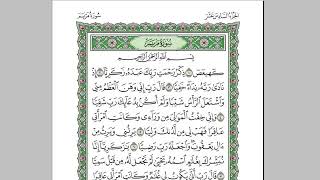 سُورَةُ مَرْيَمَ
الجُزْءُ السَّادِسَ عَشَرَ
سُورَةُ مَرْيَمَ
بِسْمِ اللَّهِ الرَّحْمَٰنِ الرَّحِيمِ
كٓهيعٓصٓ ١ ذِكْرُ رَحْمَتِ رَبِّكَ عَبْدَهُۥ زَكَرِيَّآ ٢ إِذْ
نَادَىٰ رَبَّهُۥ نِدَآءً خَفِيًّا ٣ قَالَ رَبِّ إِنِّى وَهَنَ ٱلْعَظْمُ مِنِّى
وَٱشْتَعَلَ ٱلرَّأْسُ شَيْبًا وَلَمْ أَكُنۢ بِدُعَآئِكَ رَبِّ شَقِيًّا ٤
وَإِنِّى خِفْتُ ٱلْمَوَٰلِىَ مِن وَرَآءِى وَكَانَتِ ٱمْرَأَتِى
عَاقِرًا فَهَبْ لِى مِن لَّدُنكَ وَلِيًّا ٥ يَرِثُنِى وَيَرِثُ مِنْ
ءَالِ يَعْقُوبَ وَٱجْعَلْهُ رَبِّ رَضِيًّا ٦ يَٰزَكَرِيَّآ إِنَّا
نُبَشِّرُكَ بِغُلَٰمٍ ٱسْمُهُۥ يَحْيَىٰ لَمْ نَجْعَل لَّهُۥ مِن قَبْلُ سَمِيًّا ٧
قَالَ رَبِّ أَنَّىٰ يَكُونُ لِى غُلَٰمٌ وَكَانَتِ ٱمْرَأَتِى عَاقِرًا